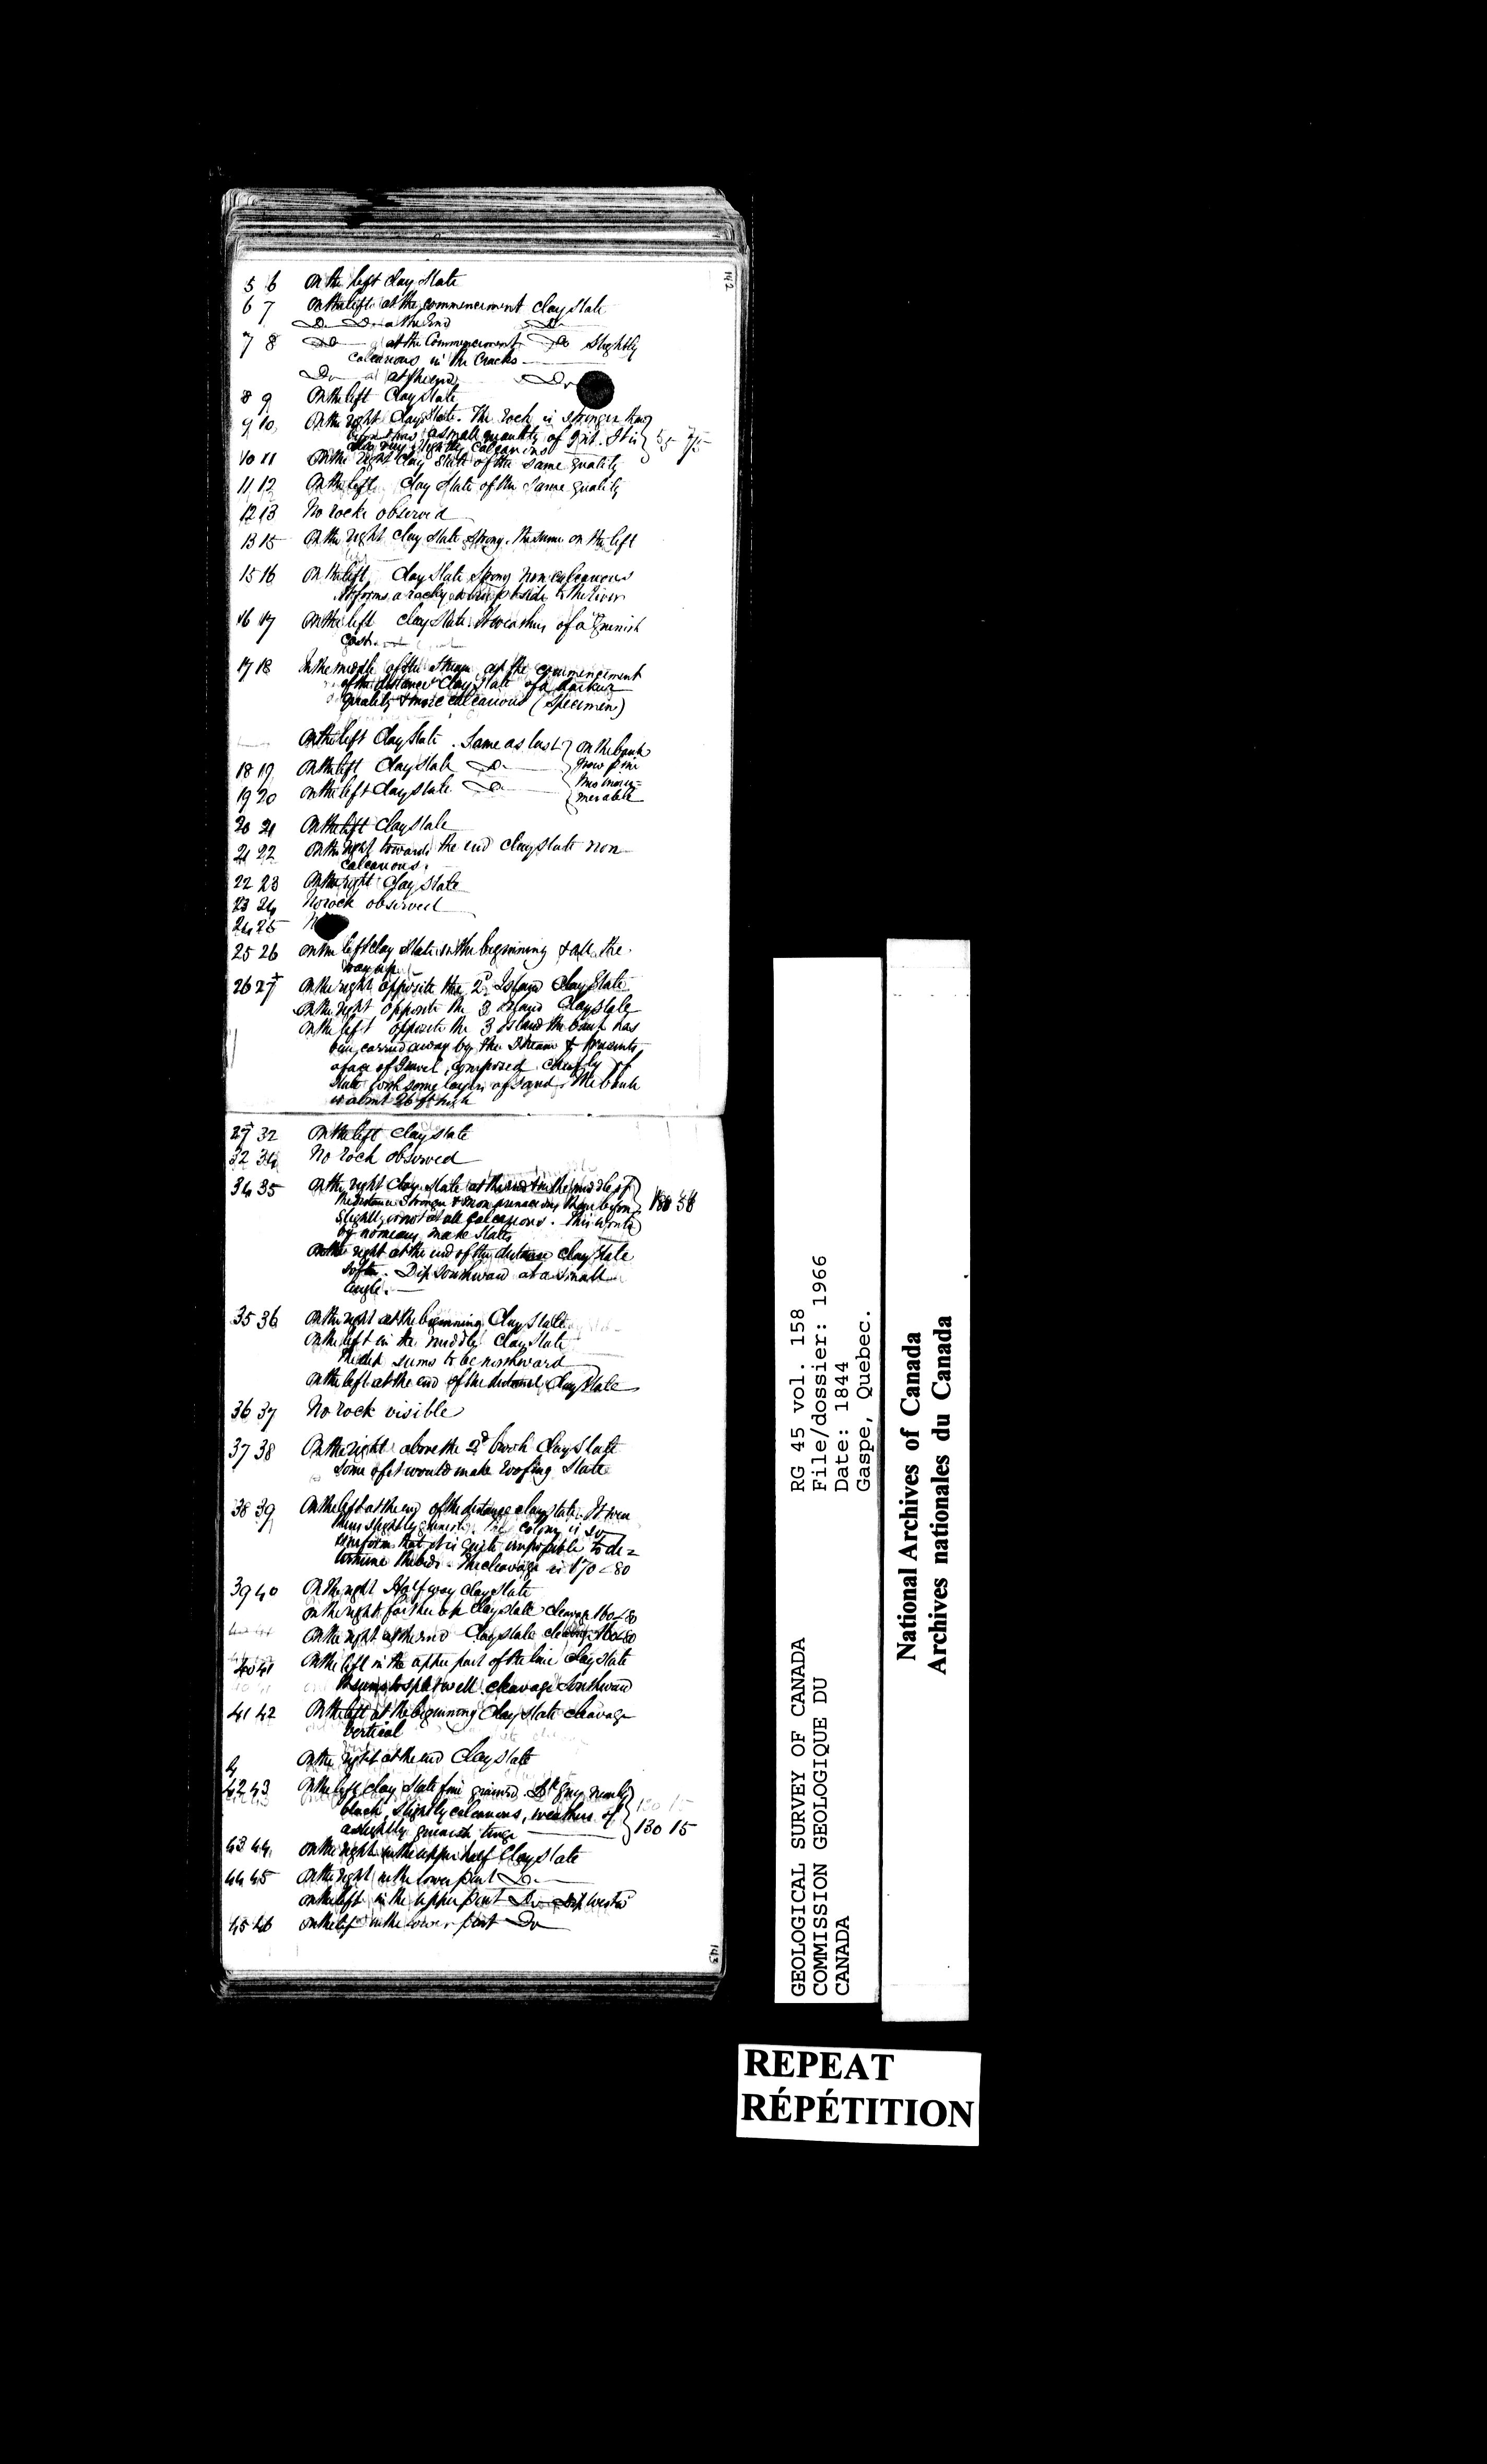 142
5 6 On the left Clay Slate
6 7 On the left at the commencement Clay Slate
Do Do at the End Do
7 8 Do at the Commencement Do Slightly
calcareous in the cracks
Do at the end Do
8 9 On the left Clay Slate
9 10 On the right Clay Slate. The rock is stronger than
before & has a small quantity of grit. It is } 55 75
also very slightly calcareous
10 11 On the right Clay Slate of the same quality
11 12 On the left Clay Slate of the same quality
12 13 No rocks observed
13 15 On the right Clay Slate strong. The same on the left
15 16 On the left Clay Slate strong non calcareous
It forms a rocky side to the River
16 17 On the left Clay Slate. It weathers of a Greenish
cast.
17 18 In the middle of the stream at the commencement
of the distance Clay Slate of a darker
quality & more calcareous (Specimen)
On the left Clay Slate. Same as last } on the bank
18 19 On the left Clay Slate Do grow pine
19 20 On the left Clay Slate Do trees innu=
merable
20 21 On the left Clay Slate
21 22 On the right towards the end Clay Slate non
calcareous.
22 23 On the right Clay Slate
23 24 No rock observed
24 25 N
25 26 On the left Clay Slate in the beginning & all the
way up
26 27 On the right opposite the 2d Island Clay Slate
On the right opposite the 3 Island Clay Slate
On the left opposite the 3 Island the bank has
been carried away by the Stream & presents
a face of Gravel, composed chiefly of
slate with some layers of sand. The bank
is about 26 ft high
27 32 On the left Clay Slate
32 34 No rock observed
34 35 On the right Clay Slate at the end & in the middle of
the distance Stronger & more than before } 180 58
Slightly or not at all calcareous. This would
by no means make Slates
On the right at the end of the distance Clay Slate
softer. Dip Southward at a small
angle.
35 36 On the right at the beginning Clay Slate
On the left in the middle Clay Slate
The dip seems to be northward
On the left at the end of the distance Clay Slate
36 37 No rock visible
37 38 On the right above the 2d brook Clay Slate
some of it would make roofing Slate
38 39 On the left at the end of the distance Clay Slate. It wea
thers slightly greenish. The colour is so
uniform that it is quite impossible to de=
termine the beds. The cleavage is 170 < 80
39 40 On the right Half way Clay Slate
On the right farther up Clay Slate cleavage 160 < 80
On the right at the end Clay Slate cleavage 160 < 80
40 41 On the left in the upper part of the line Clay Slate
It seems to split well cleavage Southward
41 42 On the left at the beginning Clay Slate cleavage
vertical
On the right at the end Clay Slate
42 43 On the left Clay Slate fine grained. Dk grey nearly
black, slightly calcareous, weathers of } 130 15
a slightly greenish tinge
43 44 On the right in the upper half Clay Slate
44 45 On the right in the lower part Do
On the left in the upper part Do Dip Westwd
45 46 On the left in the lower part Do
143
GEOLOGICAL SURVEY OF CANADA
COMMISSION GEOLOGIQUE DU
CANADA
RG 45 vol. 158
File/dossier: 1966
Date: 1844
Gaspe, Quebec.
National Archives of Canada
Archives nationales du Canada
REPEAT
RÉPÉTITION